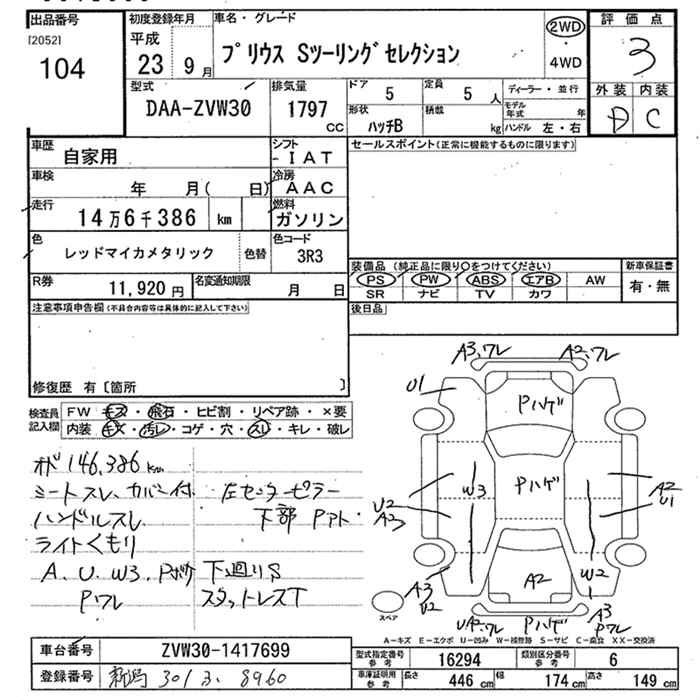 出品番号
[2052]
104
初度登録年月
平成
23 9月
車名・グレード
プリウス Sツーリングセレクション
2WD
・
4WD
評価点
3
外装 内装
D C
型式
DAA-ZVW30
排気量
1797
CC
ドア
5
定員
5 人
形状
ハッチB
積載
kg
ディーラー・並行
モデル年式 年
ハンドル 左・右
車歴
自家用
シフト
-IAT
車検
年 月( 日)
冷房
AAC
走行
14万6千386 km
燃料
ガソリン
色
レッドマイカメタリック
色替
色コード
3R3
R券
11,920円
名変通知期限
月 日
セールスポイント(正常に機能するものに限ります)
装備品 (純正品に限り○をつけてください)
PS PW ABS エアB AW
SR ナビ TV カワ
新車保証書
有・無
後日品
注意事項申告欄(不具合内容等は具体的に記入して下さい)
修復歴 有〔箇所 〕
検査員記入欄
FW キズ・飛石・ヒビ割・リペア跡・×要
内装 キズ・汚レ・コゲ・穴・スレ・キレ・破レ
オド146,386km
シートスレ、カバー付
左センターピラー
下部 Pアト
ハンドルスレ
ライトくもり
A、U、W3、Pボケ
下廻りS
Pワレ
スタッドレスT
A3、ワレ
A2、ワレ
U1
Pハゲ
Pハゲ
W3
U2
A3
A2
U1
W2
A2
A3
U2
UA2、ワレ
Pハゲ
A3
Pワレ
スペア
A-キズ E-エクボ U-凹み W-補修跡 S-サビ C-腐食 XX-交換済
車台番号
ZVW30-1417699
登録番号
新潟 301 ス 8960
型式指定番号
参考
16294
類別区分番号
参考
6
車庫証明用
参考
長さ 446 cm
幅 174 cm
高さ 149 cm